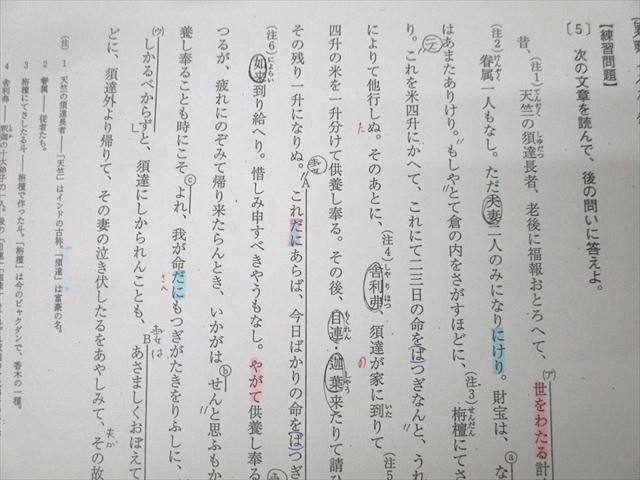 【練習問題】
〔5〕 次の文章を読んで、後の問いに答えよ。
昔、(注1)天竺の須達長者、老後に福報おとろへて、(ア)世をわたる計
てんぢく
しゆだつ
(注2)眷属一人もなし。ただ夫妻二人のみになりにけり。財宝は、ⓐな
けんぞく
はあまたありけり。もしやとて倉の内をさがすほどに、(注3)栴檀にてさ
せんだん
り。これを米四升にかへて、これにて二三日の命をばつぎなんと、うれ
によりて他行しぬ。そのあとに、(注4)舎利弗、須達が家に到りて
た
しやりほつ
の
いた
四升の米を一升分けて供養し奉る。その後、(注5)目連・迦葉来たりて請ひ
もくれん
かしやう
その残り一升になりぬ。Aこれだにあらば、今日ばかりの命をばつぎ
(注6)如来到り給へり。惜しみ申すべきやうもなし。やがて供養し奉る
によらい
つるが、疲れにのぞみて帰り来たらんとき、いかがはⓑせんと思ふもか
養し奉ることも時にこそⓒよれ、我が命だにもつぎがたきをりふしに、
さへ
(ウ)しかるべからず」と、須達にしかられんことも、Bあさましくおぼえて
どに、須達外より帰りて、その妻の泣き伏したるをあやしみて、その故
(注) 1 天竺の須達長者——「天竺」はインドの古称。「須達」は富豪の名。
2 眷属——従者たち。
3 栴檀にてさしたる斗——栴檀で作った斗。「栴檀」は今のビャクダンで、香木の一種。
4 舎利弗——釈迦の十大弟子の一人。